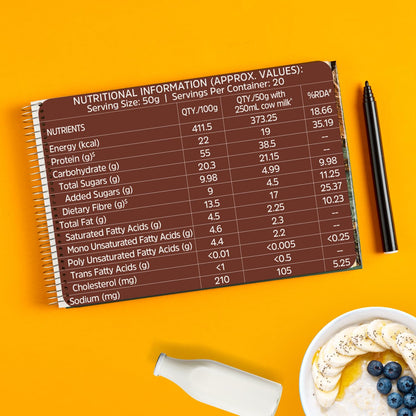 NUTRITIONAL INFORMATION (APPROX. VALUES):
Serving Size: 50g | Servings Per Container: 20
NUTRIENTS QTY./100g QTY./50g with 250mL cow milk* %RDA#
Energy (kcal) 411.5 373.25 18.66
Protein (g)$ 22 19 35.19
Carbohydrate (g) 55 38.5 --
Total Sugars (g) 20.3 21.15 --
Added Sugars (g) 9.98 4.99 9.98
Dietary Fibre (g)$ 9 4.5 11.25
Total Fat (g) 13.5 17 25.37
Saturated Fatty Acids (g) 4.5 2.25 10.23
Mono Unsaturated Fatty Acids (g) 4.6 2.3 --
Poly Unsaturated Fatty Acids (g) 4.4 2.2 --
Trans Fatty Acids (g) <0.01 <0.005 <0.25
Cholesterol (mg) <1 <0.5 --
Sodium (mg) 210 105 5.25